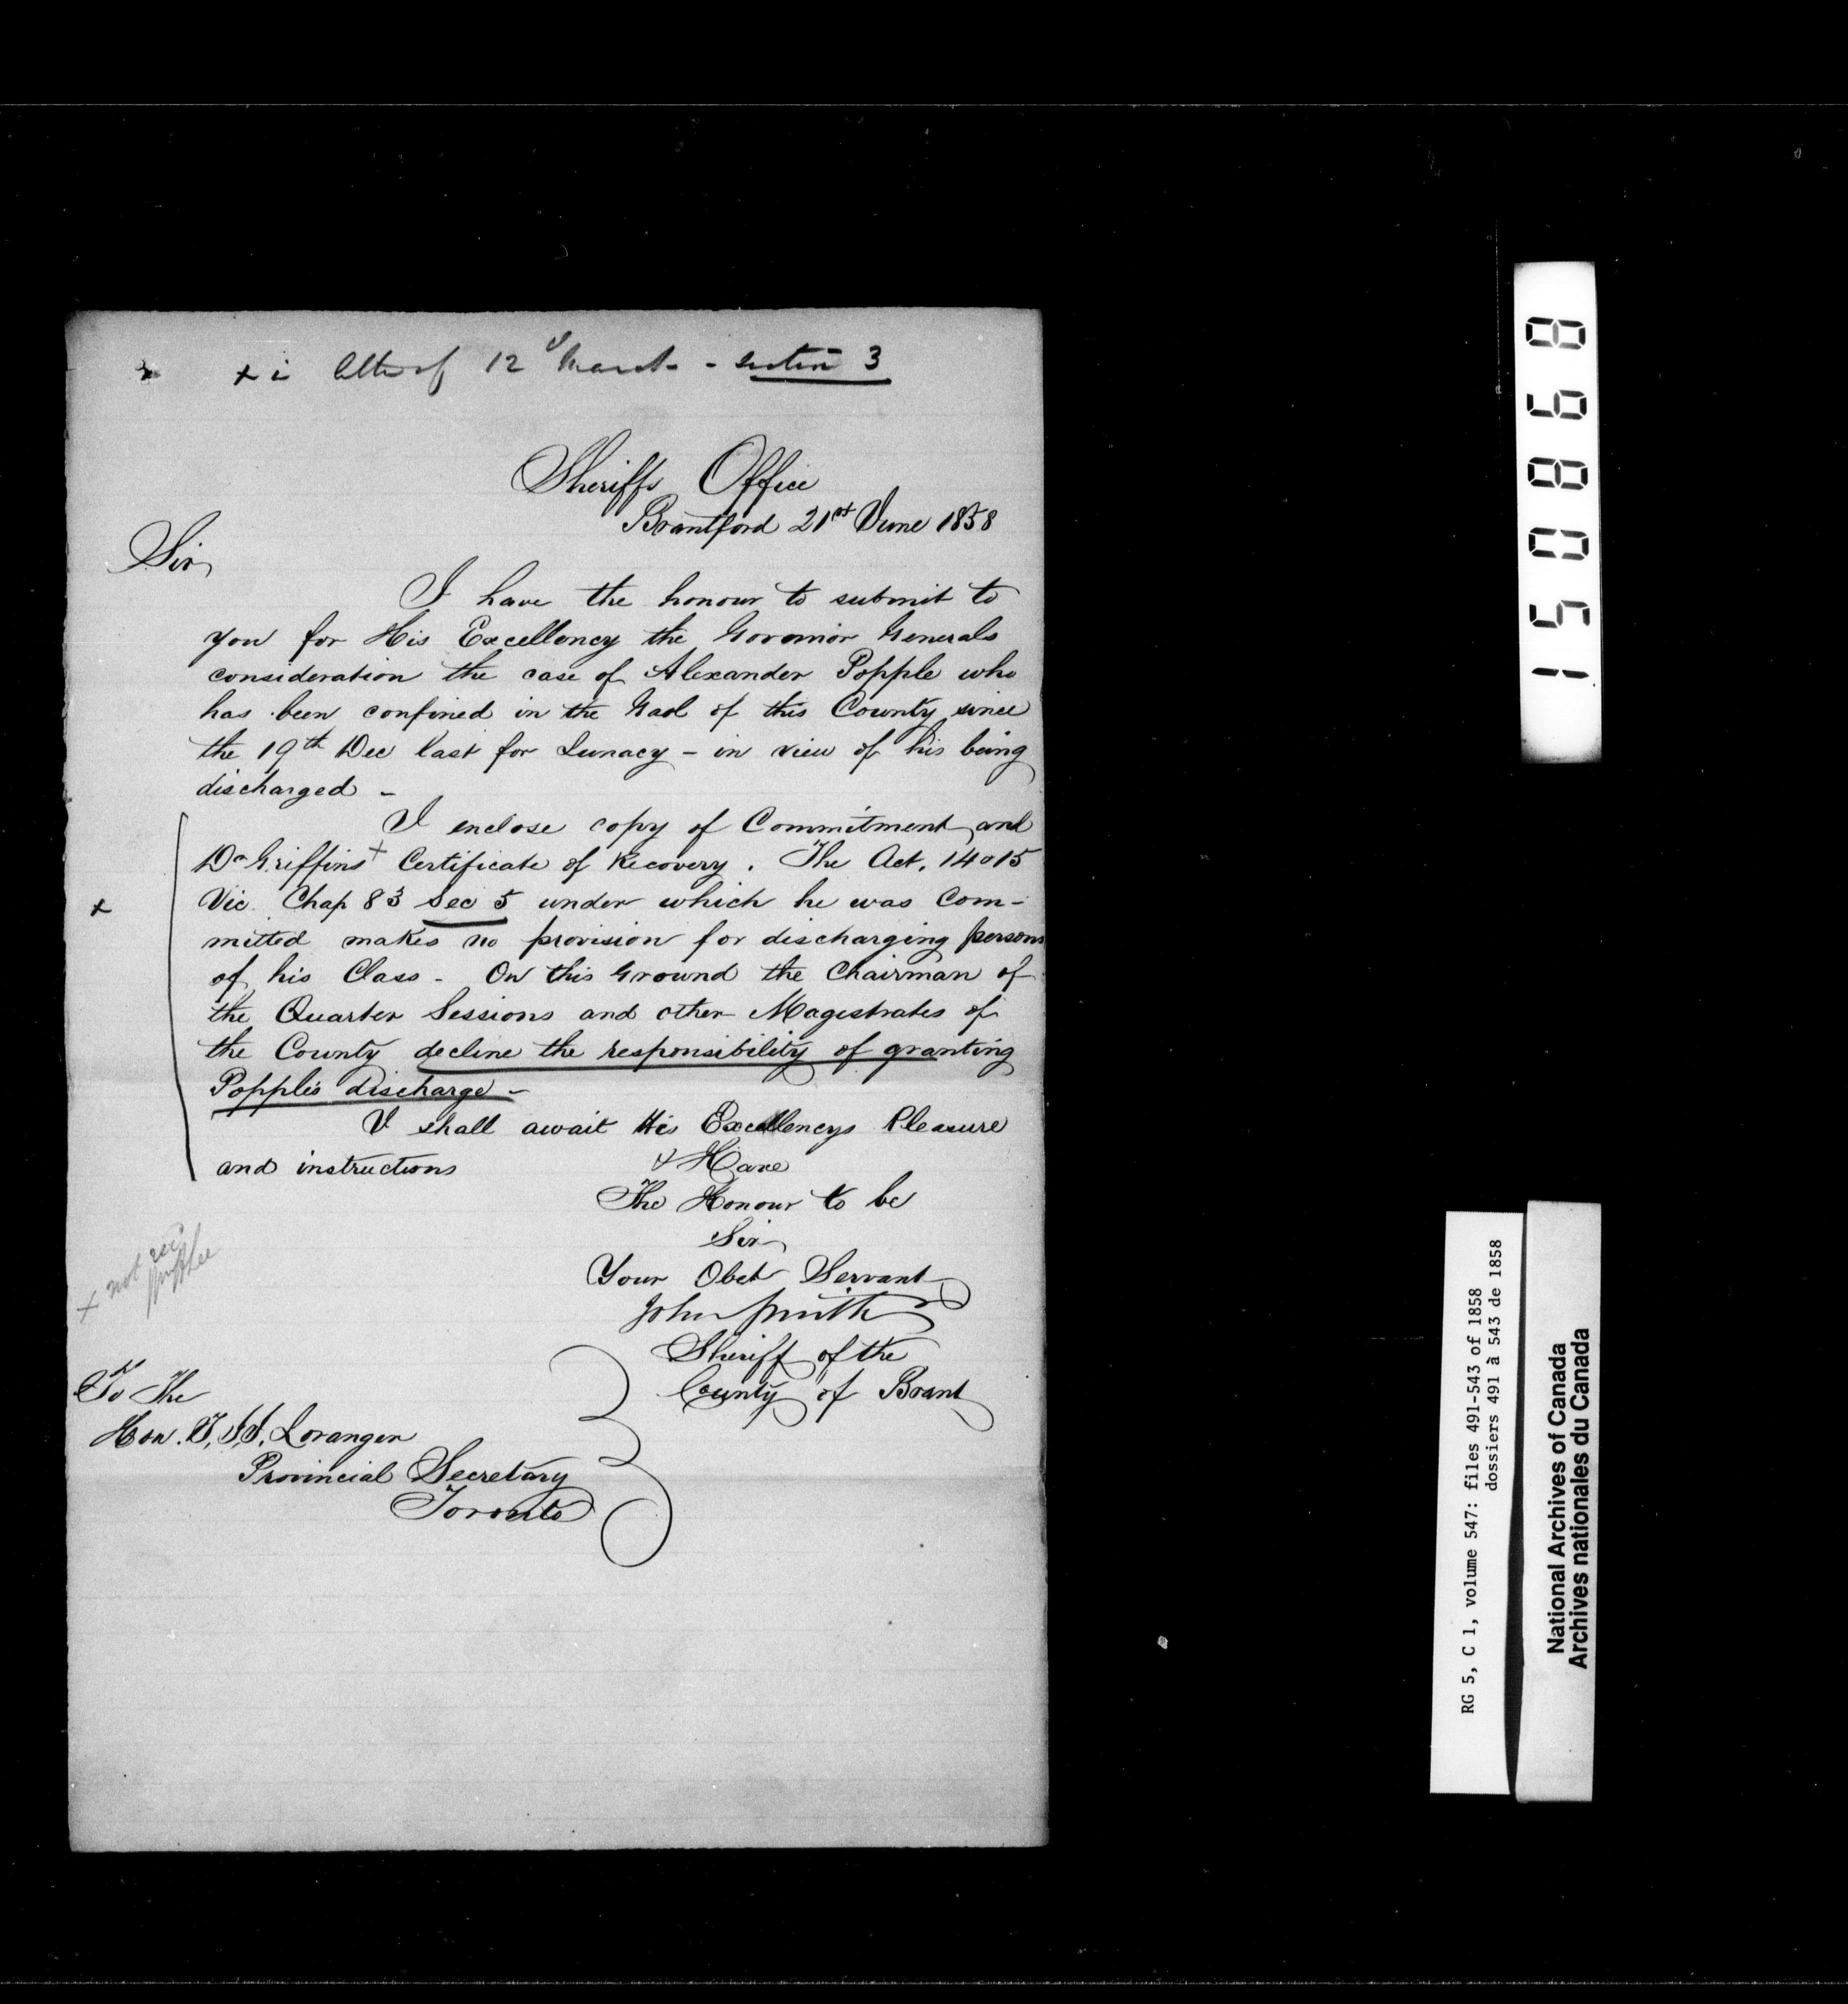 + i letter of 12 March - section 3
Sheriffs Office
Brantford 21st June 1858
Sir,
I have the honour to submit to
you for His Excellency the Govornor Generals
consideration the case of Alexander Popple who
has been confined in the Gaol of this County since
the 19th Dec last for Lunacy - in view of his being
discharged -
I enclose copy of Commitment and
Dr Griffins + Certificate of Recovery. The Act, 14 & 15
+ Vic. Chap 83 Sec 5 under which he was Com-
mitted makes no provision for discharging persons
of his Class - On this Ground the Chairman of
the Quarter Sessions and other Magistrates of
the County decline the responsibility of granting
Popple's discharge -
I shall await His Excellencys Pleasure
and instructions & Have
The Honour to be
Sir
Your Obet Servant
John Smith
Sheriff of the
County of Brant
+ not
To The
Hon. T. J. J. Loranger
Provincial Secretary
Toronto
150868
RG 5, C 1, volume 547: files 491-543 of 1858
dossiers 491 à 543 de 1858
National Archives of Canada
Archives nationales du Canada